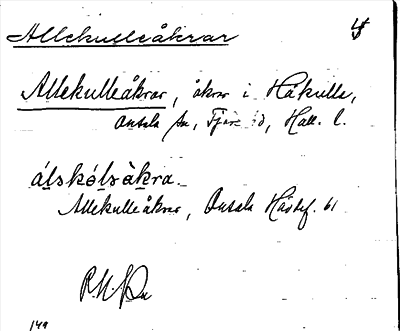 Allekulleåkrar
Allekulleåkrar, åkrar i Håkulla,
Onsala sn, Fjäre hd, Hall. l.
álskólsàkra.
Allekulleåkrar, Onsala Hdskf. 61
149